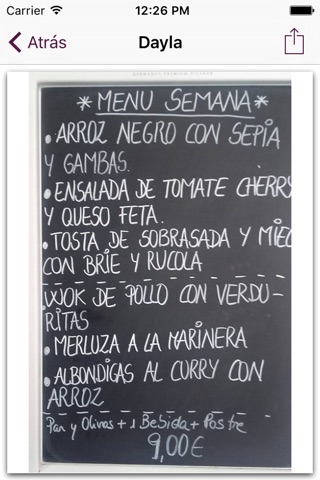 Carrier 12:26 PM
Atrás Dayla
*MENU SEMANA*
• ARROZ NEGRO CON SEPIA
Y GAMBAS.
• ENSALADA DE TOMATE CHERRY
Y QUESO FETA.
• TOSTA DE SOBRASADA Y MIEL
CON BRIE Y RUCOLA
WOK DE POLLO CON VERDU-
RITAS
• MERLUZA A LA MARINERA
• ALBONDIGAS AL CURRY CON
ARROZ
Pan y Olivas + 1 Bebida + Postre
9,00€